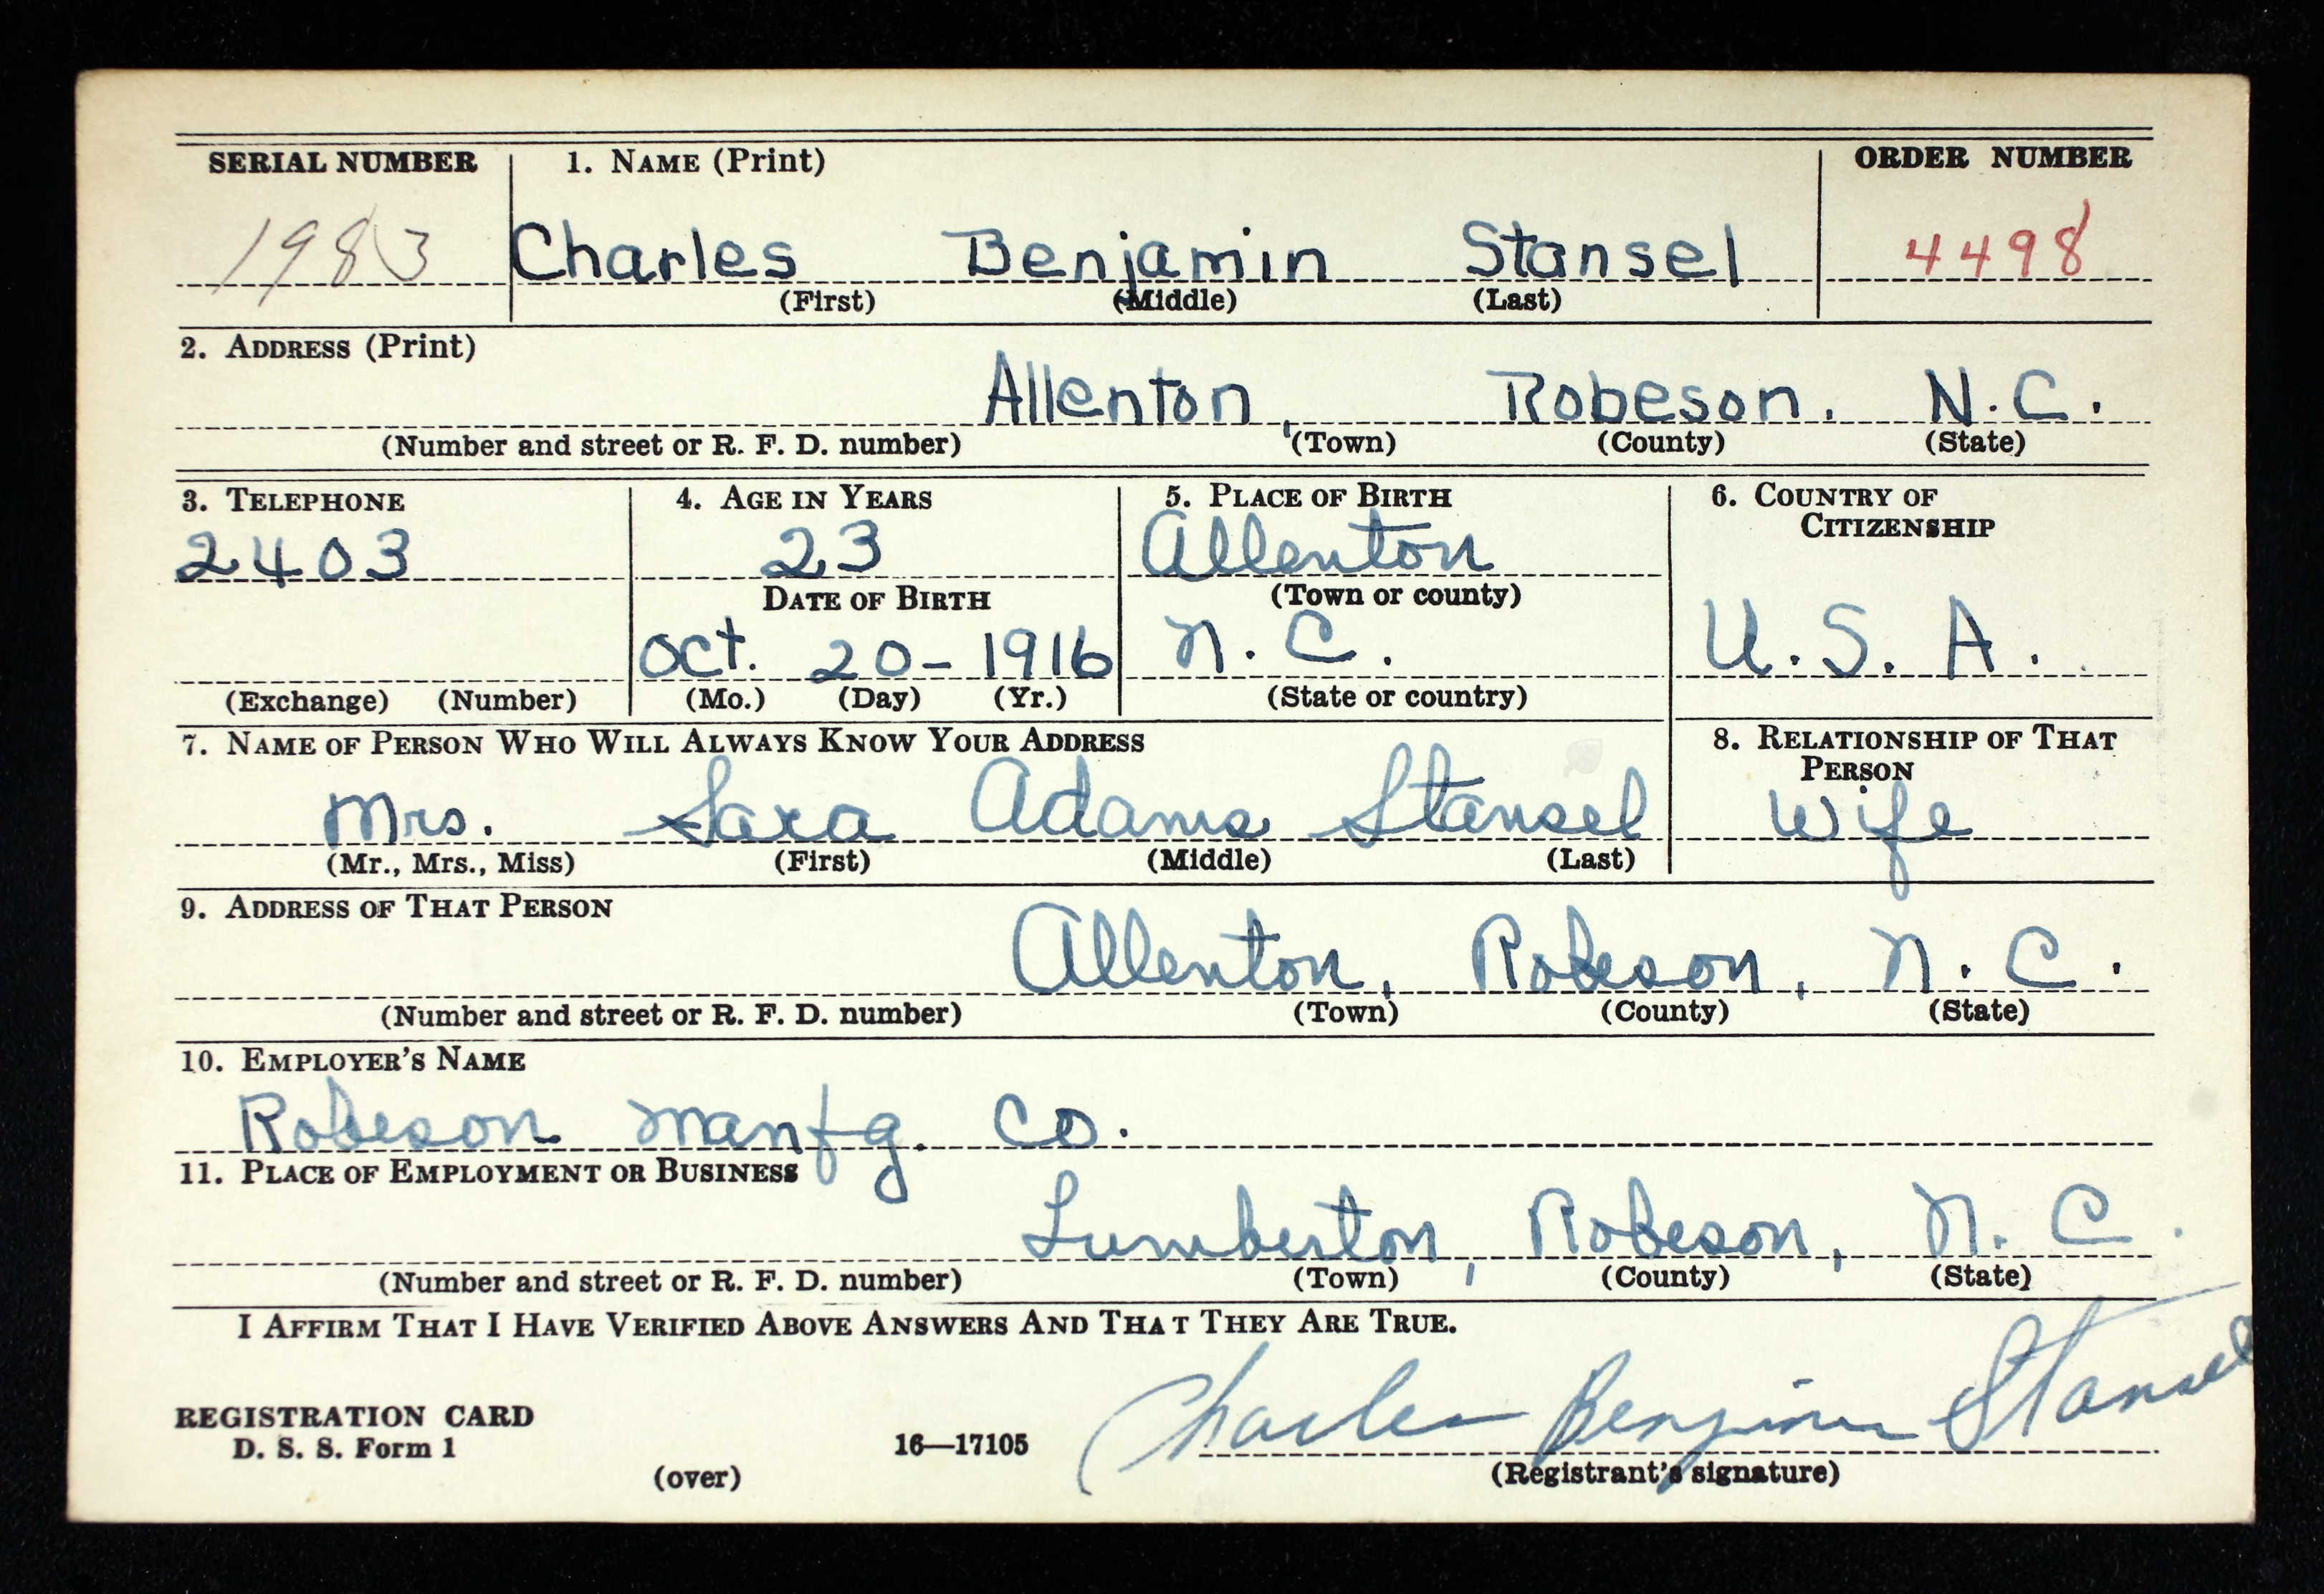 SERIAL NUMBER 1. NAME (Print) ORDER NUMBER
1983 Charles Benjamin Stansel 4498
(First) (Middle) (Last)
2. ADDRESS (Print)
Allenton, Robeson. N.C.
(Number and street or R. F. D. number) (Town) (County) (State)
3. TELEPHONE 4. AGE IN YEARS 5. PLACE OF BIRTH 6. COUNTRY OF
CITIZENSHIP
2403 23 Allenton
DATE OF BIRTH (Town or county)
Oct. 20-1916 N.C. U.S.A.
(Exchange) (Number) (Mo.) (Day) (Yr.) (State or country)
7. NAME OF PERSON WHO WILL ALWAYS KNOW YOUR ADDRESS 8. RELATIONSHIP OF THAT
PERSON
Mrs. Sara Adams Stansel Wife
(Mr., Mrs., Miss) (First) (Middle) (Last)
9. ADDRESS OF THAT PERSON
Allenton, Robeson, N.C.
(Number and street or R. F. D. number) (Town) (County) (State)
10. EMPLOYER'S NAME
Robeson Manfg. Co.
11. PLACE OF EMPLOYMENT OR BUSINESS
Lumberton, Robeson, N.C.
(Number and street or R. F. D. number) (Town) (County) (State)
I AFFIRM THAT I HAVE VERIFIED ABOVE ANSWERS AND THAT THEY ARE TRUE.
Charles Benjamin Stansel
REGISTRATION CARD
D. S. S. Form 1 16—17105
(over) (Registrant's signature)